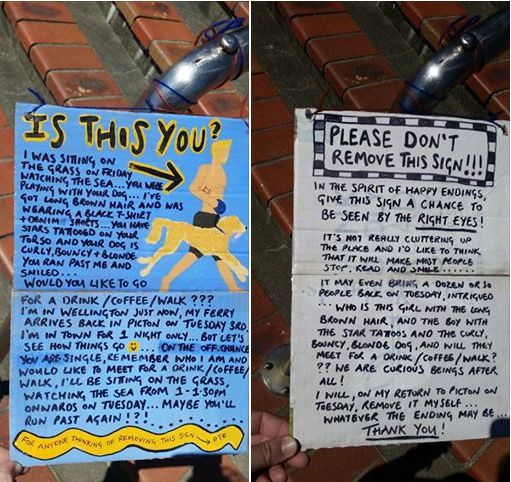 IS THIS YOU?
I WAS SITTING ON
THE GRASS ON FRIDAY
WATCHING THE SEA... YOU WERE
PLAYING WITH YOUR DOG... I'VE
GOT LONG BROWN HAIR AND WAS
WEARING A BLACK T-SHIRT
+ DENIM SHORTS... YOU HAVE
STARS TATTOOED ON YOUR
TORSO AND YOUR DOG IS
CURLY, BOUNCY + BLONDE
YOU RAN PAST ME AND
SMILED...
WOULD YOU LIKE TO GO
FOR A DRINK/COFFEE/WALK ???
I'M IN WELLINGTON JUST NOW, MY FERRY
ARRIVES BACK IN PICTON ON TUESDAY 3RD.
I'M IN TOWN FOR 1 NIGHT ONLY... BUT LET'S
SEE HOW THINGS GO 🙂... ON THE OFF-CHANCE
YOU ARE SINGLE, REMEMBER WHO I AM AND
WOULD LIKE TO MEET FOR A DRINK/COFFEE/
WALK, I'LL BE SITTING ON THE GRASS,
WATCHING THE SEA FROM 1-1:30PM
ONWARDS ON TUESDAY... MAYBE YOU'LL
RUN PAST AGAIN !?!
FOR ANYONE THINKING OF REMOVING THIS SIGN → PTO
PLEASE DON'T
REMOVE THIS SIGN!!!
IN THE SPIRIT OF HAPPY ENDINGS,
GIVE THIS SIGN A CHANCE TO
BE SEEN BY THE RIGHT EYES!
IT'S NOT REALLY CLUTTERING UP
THE PLACE AND I'D LIKE TO THINK
THAT IT WILL MAKE MOST PEOPLE
STOP, READ AND SMILE.......
IT MAY EVEN BRING A DOZEN OR SO
PEOPLE BACK ON TUESDAY, INTRIGUED
.. WHO IS THE GIRL WITH THE LONG
BROWN HAIR, AND THE BOY WITH
THE STAR TATTOOS AND THE CURLY,
BOUNCY, BLONDE DOG, AND WILL THEY
MEET FOR A DRINK/COFFEE/WALK?
?? WE ARE CURIOUS BEINGS AFTER
ALL!
I WILL, ON MY RETURN TO PICTON ON
TUESDAY, REMOVE IT MYSELF...
WHATEVER THE ENDING MAY BE...
THANK YOU!